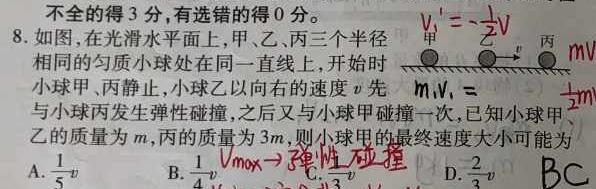 不全的得 3 分,有选错的得 0 分。
V₁' = -½V
8. 如图,在光滑水平面上,甲、乙、丙三个半径
甲 乙 v 丙
mV
相同的匀质小球处在同一直线上,开始时
小球甲、丙静止,小球乙以向右的速度 v 先
m₁V₁ =
½m
与小球丙发生弹性碰撞,之后又与小球甲碰撞一次,已知小球甲、
乙的质量为 m,丙的质量为 3m,则小球甲的最终速度大小可能为
Vmax → 弹性碰撞
A. 1/5 v B. 1/4 v C. 1/3 v D. 2/3 v
BC